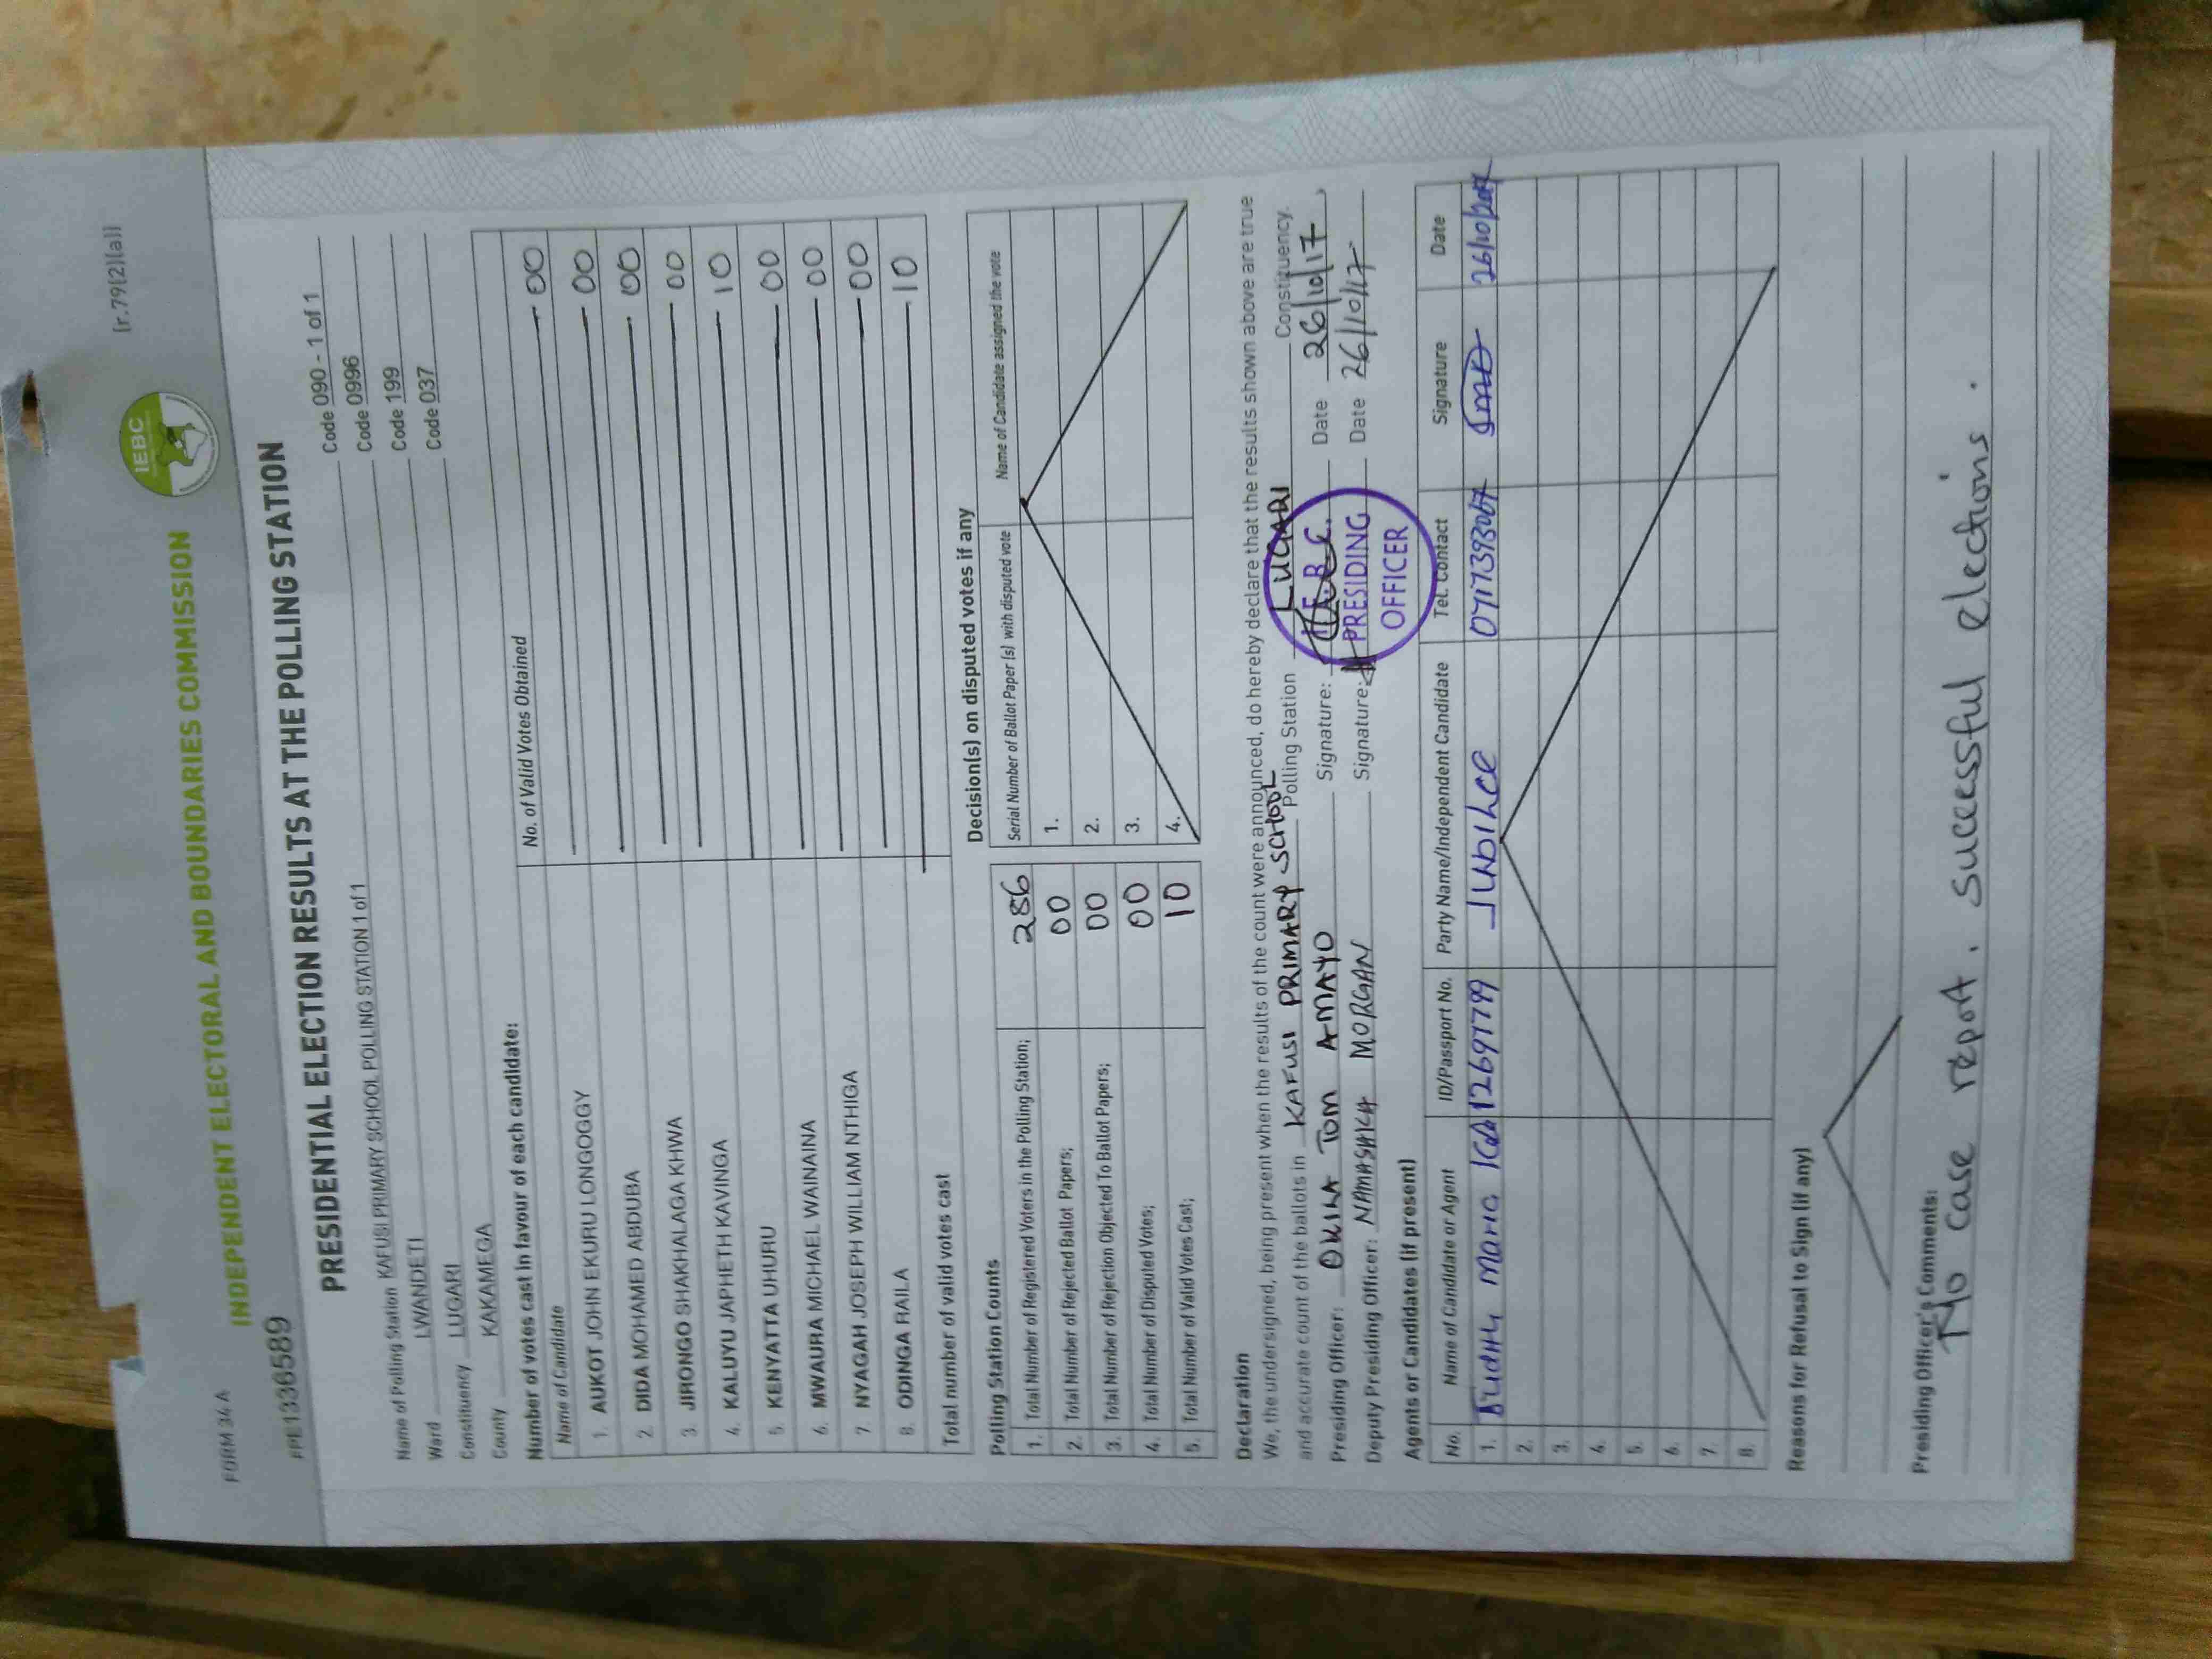 FORM 34 A
(r.79(2)(a))
IEBC
INDEPENDENT ELECTORAL AND BOUNDARIES COMMISSION
PPE1336589
PRESIDENTIAL ELECTION RESULTS AT THE POLLING STATION
Name of Polling Station KAFUSI PRIMARY SCHOOL POLLING STATION 1 of 1 Code 090 - 1 of 1
Ward LWANDETI Code 0996
Constituency LUGARI Code 199
County KAKAMEGA Code 037
Number of votes cast in favour of each candidate:
Name of Candidate No. of Valid Votes Obtained
1. AUKOT JOHN EKURU LONGOGGY 00
2. DIDA MOHAMED ABDUBA 00
3. JIRONGO SHAKHALAGA KHWA 00
4. KALUYU JAPHETH KAVINGA 00
5. KENYATTA UHURU 10
6. MWAURA MICHAEL WAINAINA 00
7. NYAGAH JOSEPH WILLIAM NTHIGA 00
8. ODINGA RAILA 00
Total number of valid votes cast 10
Polling Station Counts
1. Total Number of Registered Voters in the Polling Station; 286
2. Total Number of Rejected Ballot Papers; 00
3. Total Number of Rejection Objected To Ballot Papers; 00
4. Total Number of Disputed Votes; 00
5. Total Number of Valid Votes Cast; 10
Decision(s) on disputed votes if any
Serial Number of Ballot Paper (s) with disputed vote Name of Candidate assigned the vote
1.
2.
3.
4.
Declaration
We, the undersigned, being present when the results of the count were announced, do hereby declare that the results shown above are true
and accurate count of the ballots in KAFUSI PRIMARY SCHOOL Polling Station LUGARI Constituency.
Presiding Officer: OKILA TOM AMAYO Signature: Date 26/10/17
Deputy Presiding Officer: NAMASAKA MORGAN Signature: Date 26/10/17
I.E.B.C.
PRESIDING
OFFICER
Agents or Candidates (if present)
No. Name of Candidate or Agent ID/Passport No. Party Name/Independent Candidate Tel. Contact Signature Date
1. Judith Maria 12697799 Jubilee 0717393067 26/10/2017
2.
3.
4.
5.
6.
7.
8.
Reasons for Refusal to Sign (if any)
Presiding Officer's Comments:
No case report. Successful elections.